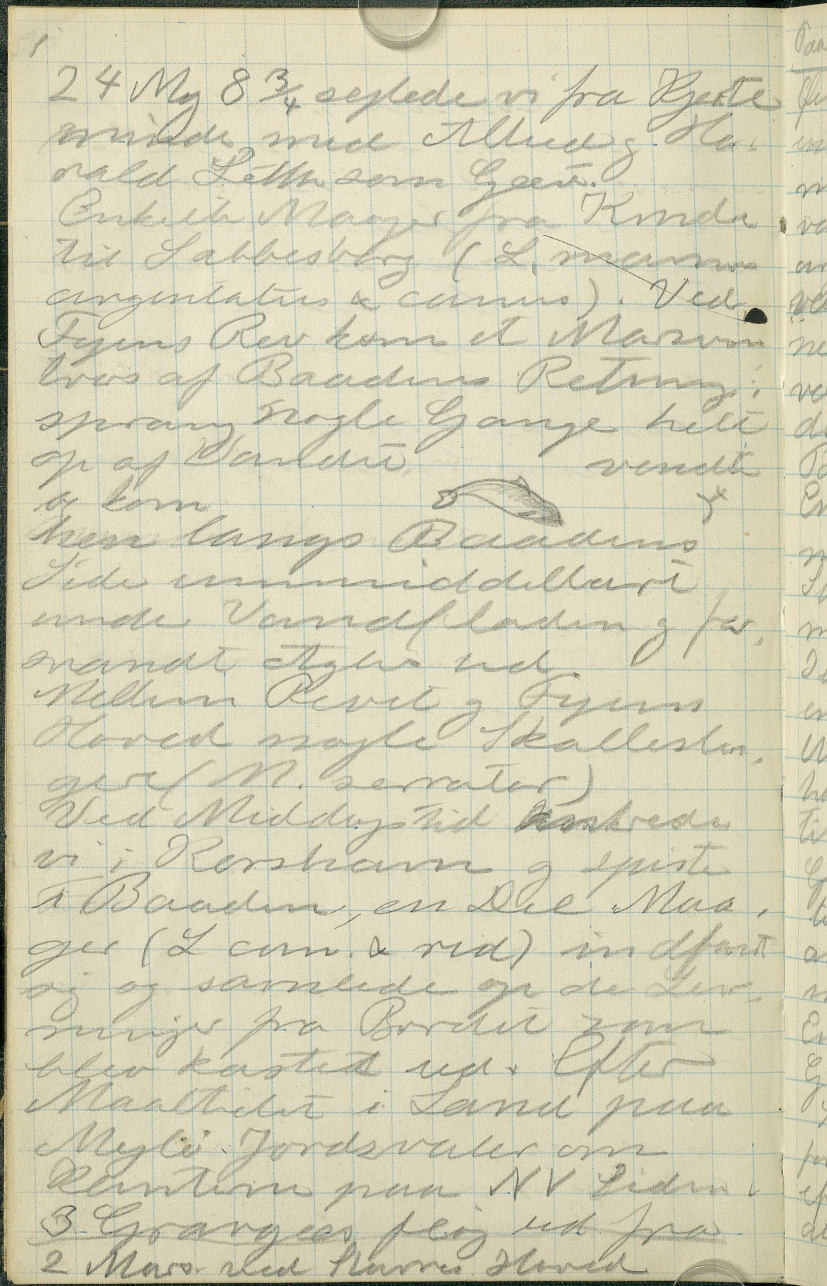 1
24 Maj 8 3/4 sejlede vi fra Kjerte
minde med Alhed og Ha.
rald Leth som Gæst.
Enkelte Maager fra Krudt
til Labbesbjerg (L, marinus
argentatus & canus). Ved
Fyens Rev kom et Marsvin
tvers af Baadens Retning;
sprang nogle Gange helt
op af Vandet, vendte
og kom
hen langs Baadens
Side ummiddelbart
under Vandfladen og for,
svandt Agter ud
Mellem Revet og Fyens
Hoved nogle Skallesluu,
gere (M. serrator)
Ved Middagstid ankrede
vi i Korshavn og spiste
i Baaden, en Del Maa,
ger (L can. & rid) indfandt
sig og samlede op de Lev,
ninger fra Bordet som
blev kastet ud. Efter
Maaltidet i Land paa
Mejlø. Jordsvaler om
Kanterne paa NV Siden.
3 Gravgæs fløj ud fra
2 Mars. ved Stavres Hoved